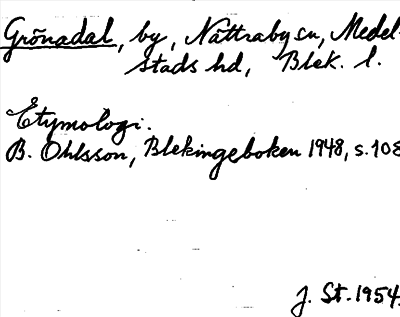 Grönadal, by, Nättraby sn, Medel-
stads hd, Blek. l.
Etymologi.
B. Ohlsson, Blekingeboken 1948, s. 108
J. St. 1954.